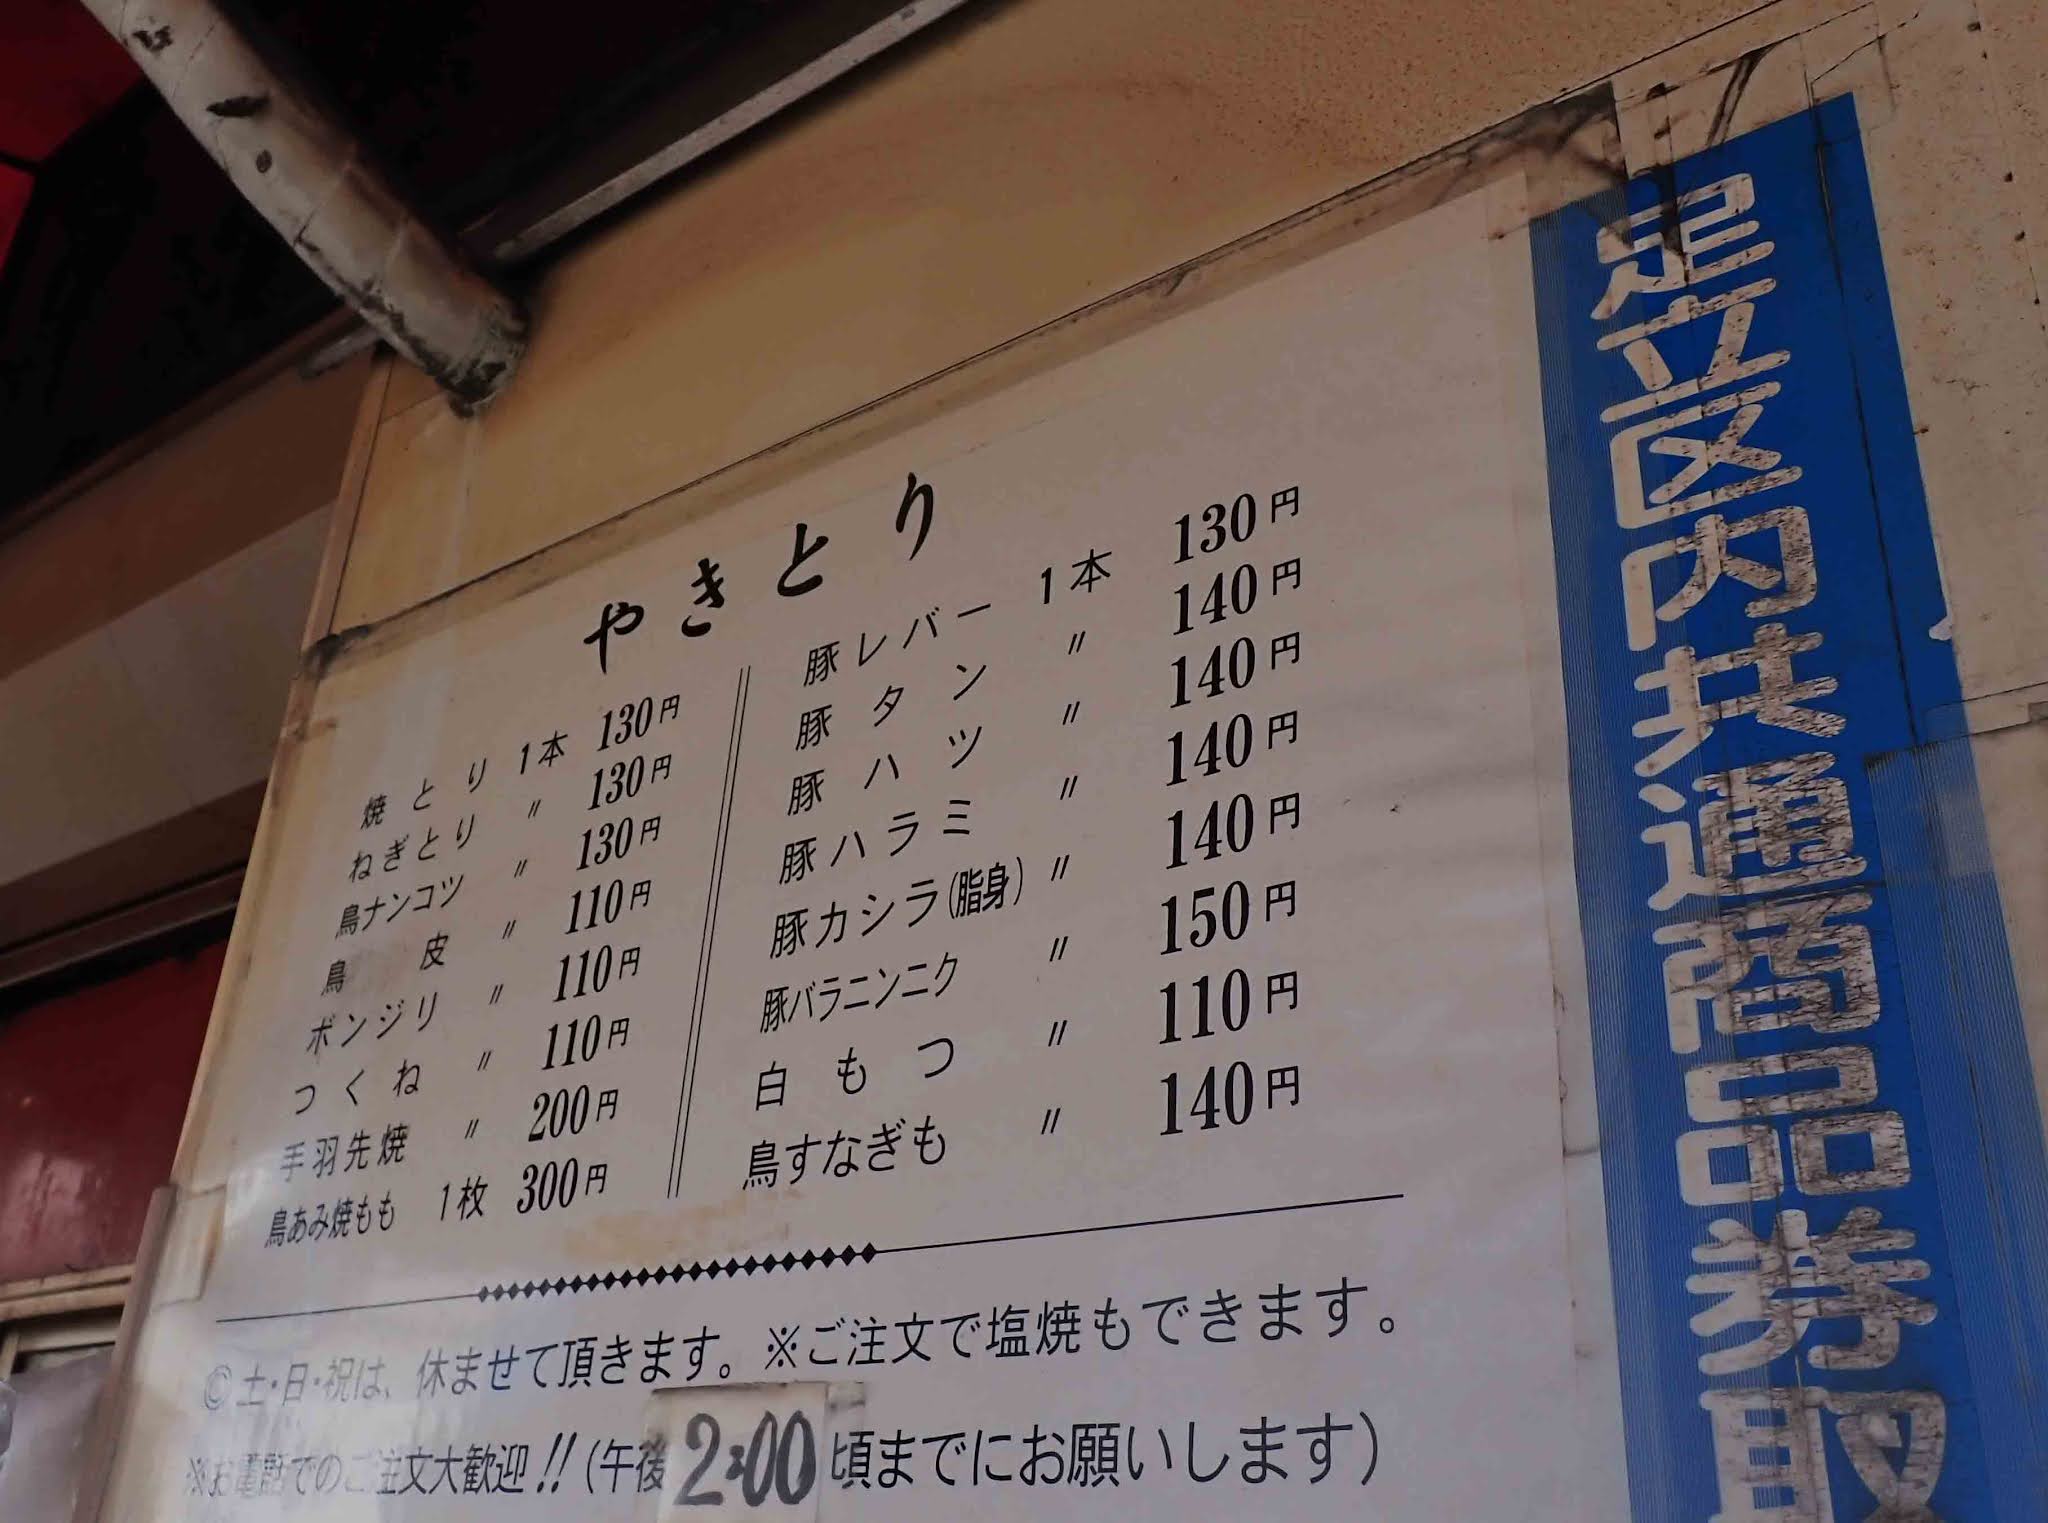 やきとり
焼とり 1本 130円
ねぎとり 〃 130円
鳥ナンコツ 〃 130円
鳥皮 〃 110円
ボンジリ 〃 110円
つくね 〃 110円
手羽先焼 〃 200円
鳥あみ焼もも 1枚 300円
豚レバー 1本 130円
豚タン 〃 140円
豚ハツ 〃 140円
豚ハラミ 〃 140円
豚カシラ(脂身) 〃 140円
豚バラニンニク 〃 150円
白もつ 〃 110円
鳥すなぎも 〃 140円
©土・日・祝は、休ませて頂きます。※ご注文で塩焼もできます。
※お電話でのご注文大歓迎!!(午後2:00頃までにお願いします)
足立区内共通商品券取